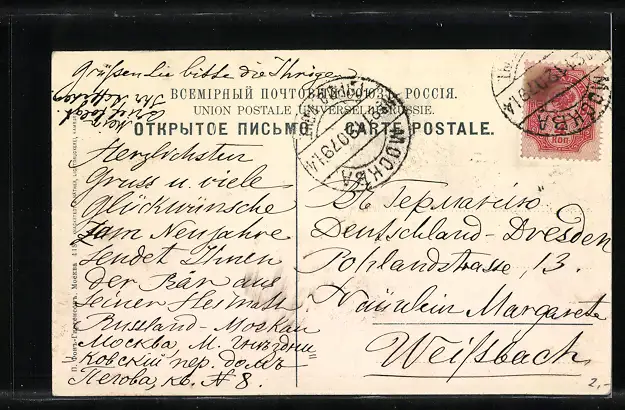 Grüßen Sie bitte die Ihrigen
ВСЕМІРНЫЙ ПОЧТОВЫЙ СОЮЗЪ. РОССІЯ.
UNION POSTALE UNIVERSELLE. RUSSIE.
ОТКРЫТОЕ ПИСЬМО. CARTE POSTALE.
МОСКВА
МОСКВА
КОП
Herzlichsten
Gruss u. viele
Glückwünsche
zum Neujahre
sendet Ihnen
der Bär aus
seiner Heimath
Russland-Moskau
Москва, М. Гнѣздни
ковскій пер. домъ
Пегова, кв. № 8.
Въ Германію
Deutschland-Dresden
Pohlandstrasse, 13.
Fräulein Margarete
Weissbach
2,-